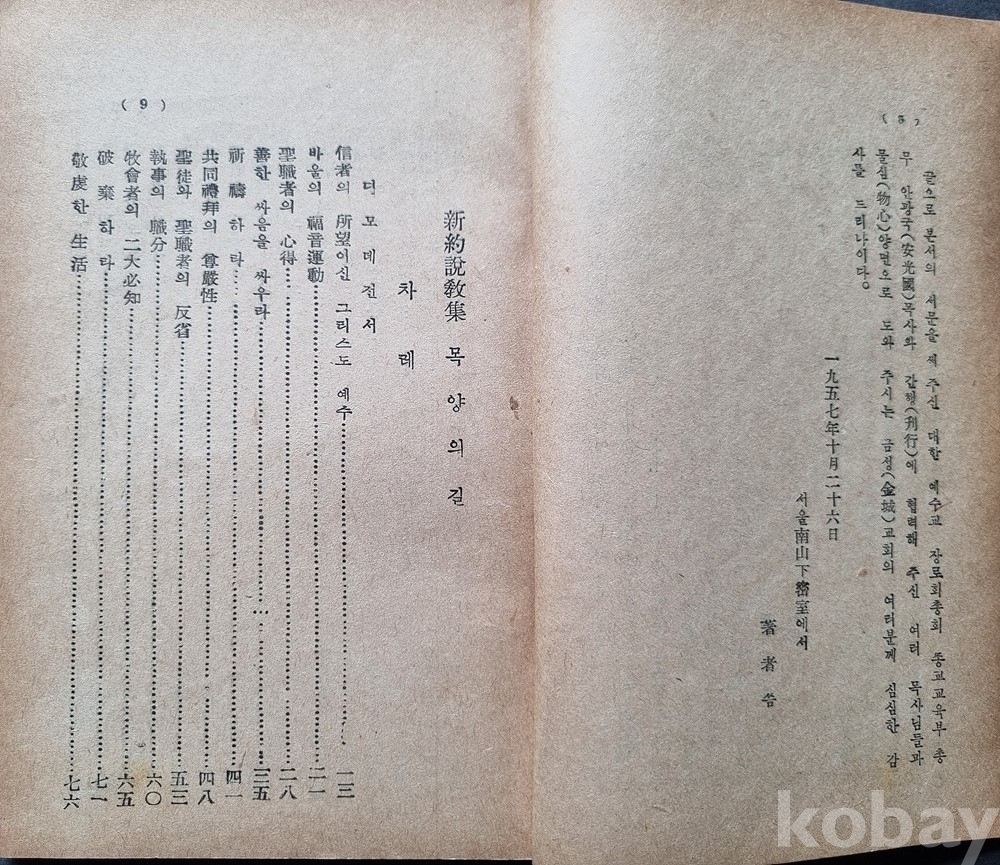 ( 8 )
끝으로 본서의 서문을 써 주신 대한 예수교 장로회총회 종교교육부 총
무 안광국(安光國)목사와 간행(刊行)에 협력해 주신 여러 목사님들과
물심(物心)양면으로 도와 주시는 금성(金城)교회의 여러분께 심심한 감
사를 드리나이다。
一九五七年十月二十六日
서울南山下密室에서
著者 씀
( 9 )
新約說敎集 목양의길
차례
디모데전서
信者의 所望이신 그리스도 예수……一三
바울의 福音運動……二一
聖職者의 心得……二八
善한 싸움을 싸우라……三五
祈禱하라……四一
共同禮拜의 尊嚴性……四八
聖徒와 聖職者의 反省……五三
執事의 職分……六〇
牧會者의 二大必知……六五
破棄하라……七一
敬虔한 生活……七六
kobay